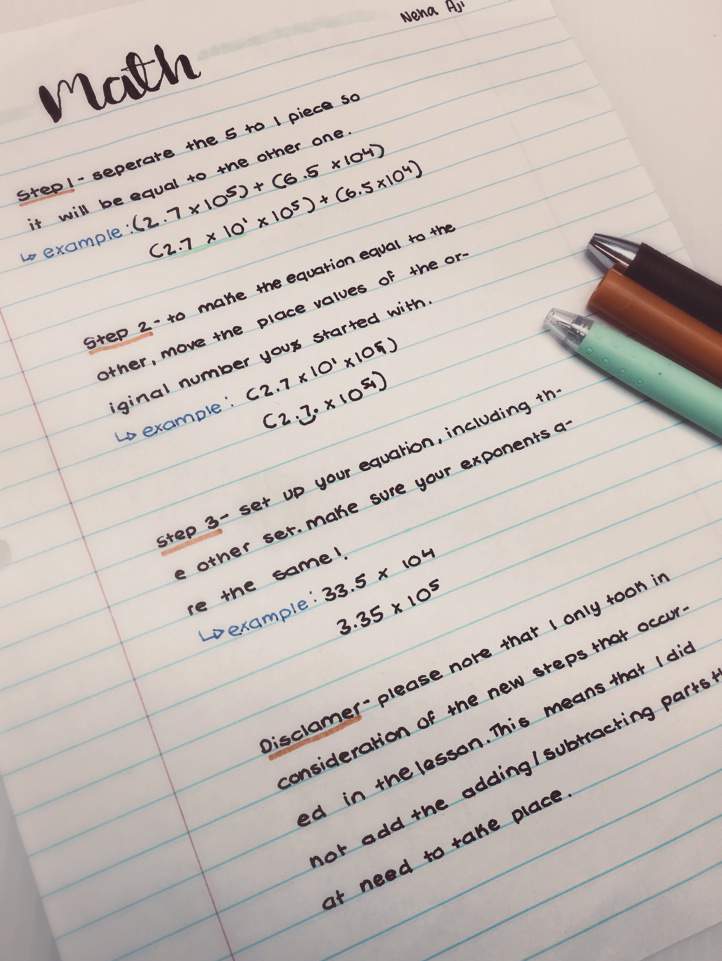 Neha Aji
Math
Step 1- seperate the 5 to 1 piece so
it will be equal to the other one.
↳ example: (2.7 x 10⁵) + (6.5 x 10⁴)
(2.7 x 10¹ x 10⁵) + (6.5 x 10⁴)
Step 2- to make the equation equal to the
other, move the place values of the or-
iginal number you started with.
↳ example: (2.7 x 10¹ x 10⁵)
(2.7. x 10⁴)
Step 3- set up your equation, including th-
e other set. make sure your exponents a-
re the same!.
↳ example: 33.5 x 10⁴
3.35 x 10⁵
Disclamer- please note that I only took in
consideration of the new steps that occur-
ed in the lesson. This means that I did
not add the adding/subtracting parts th
at need to take place.